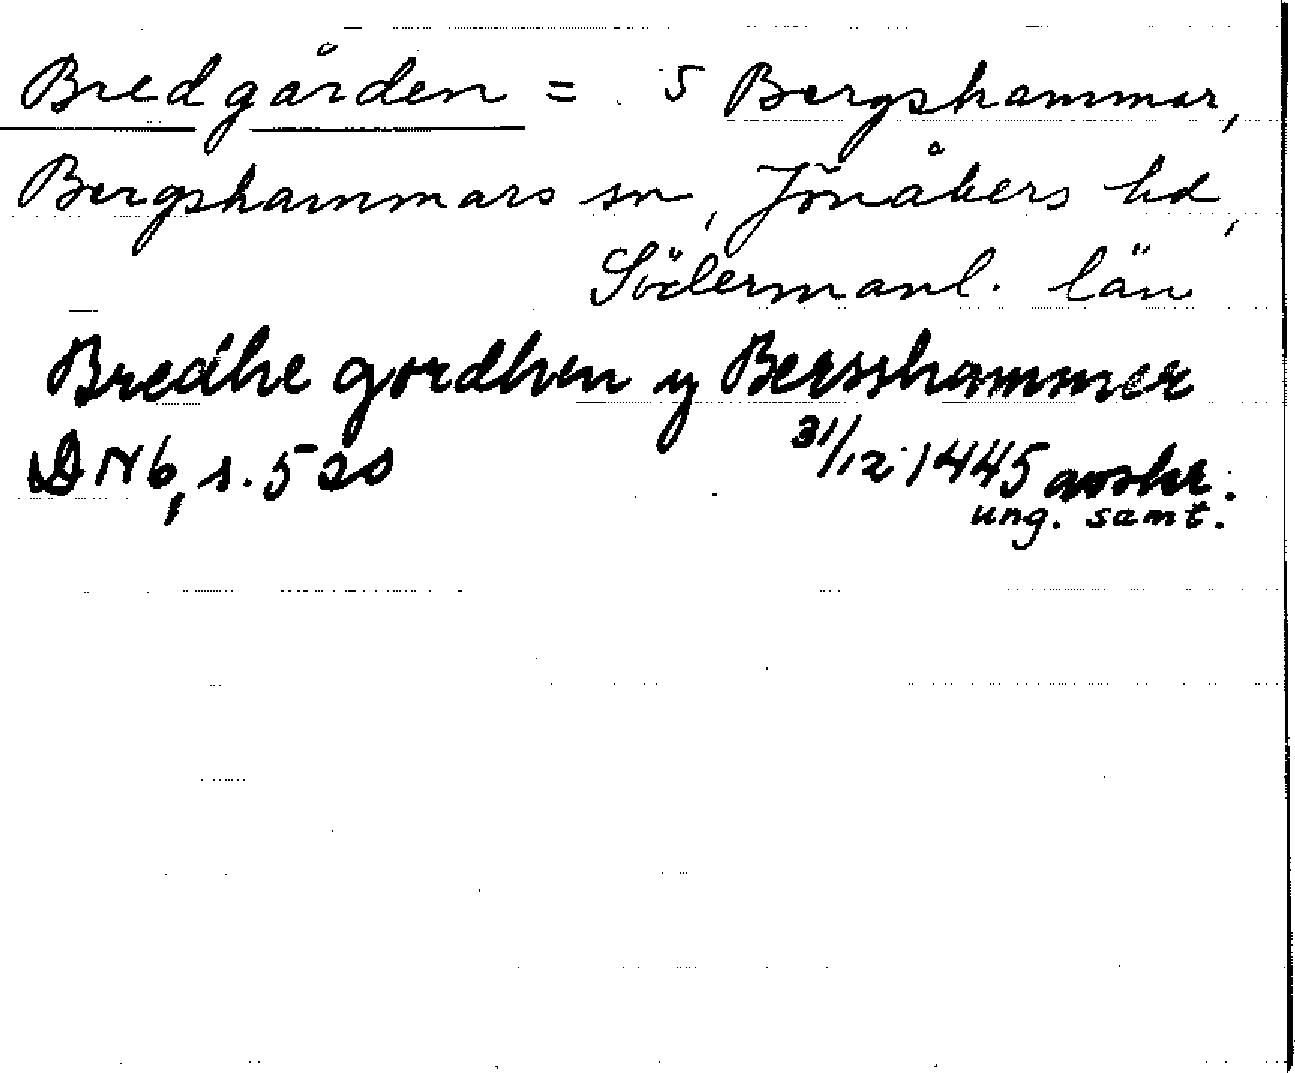 Bredgården = 5 Bergshammar,
Bergshammars sn, Jönåkers hd,
Södermanl. län
Bredhe gordhen y Bersshammer
DN 6, s. 520 31/12 1445 avskr.
ung. samt.